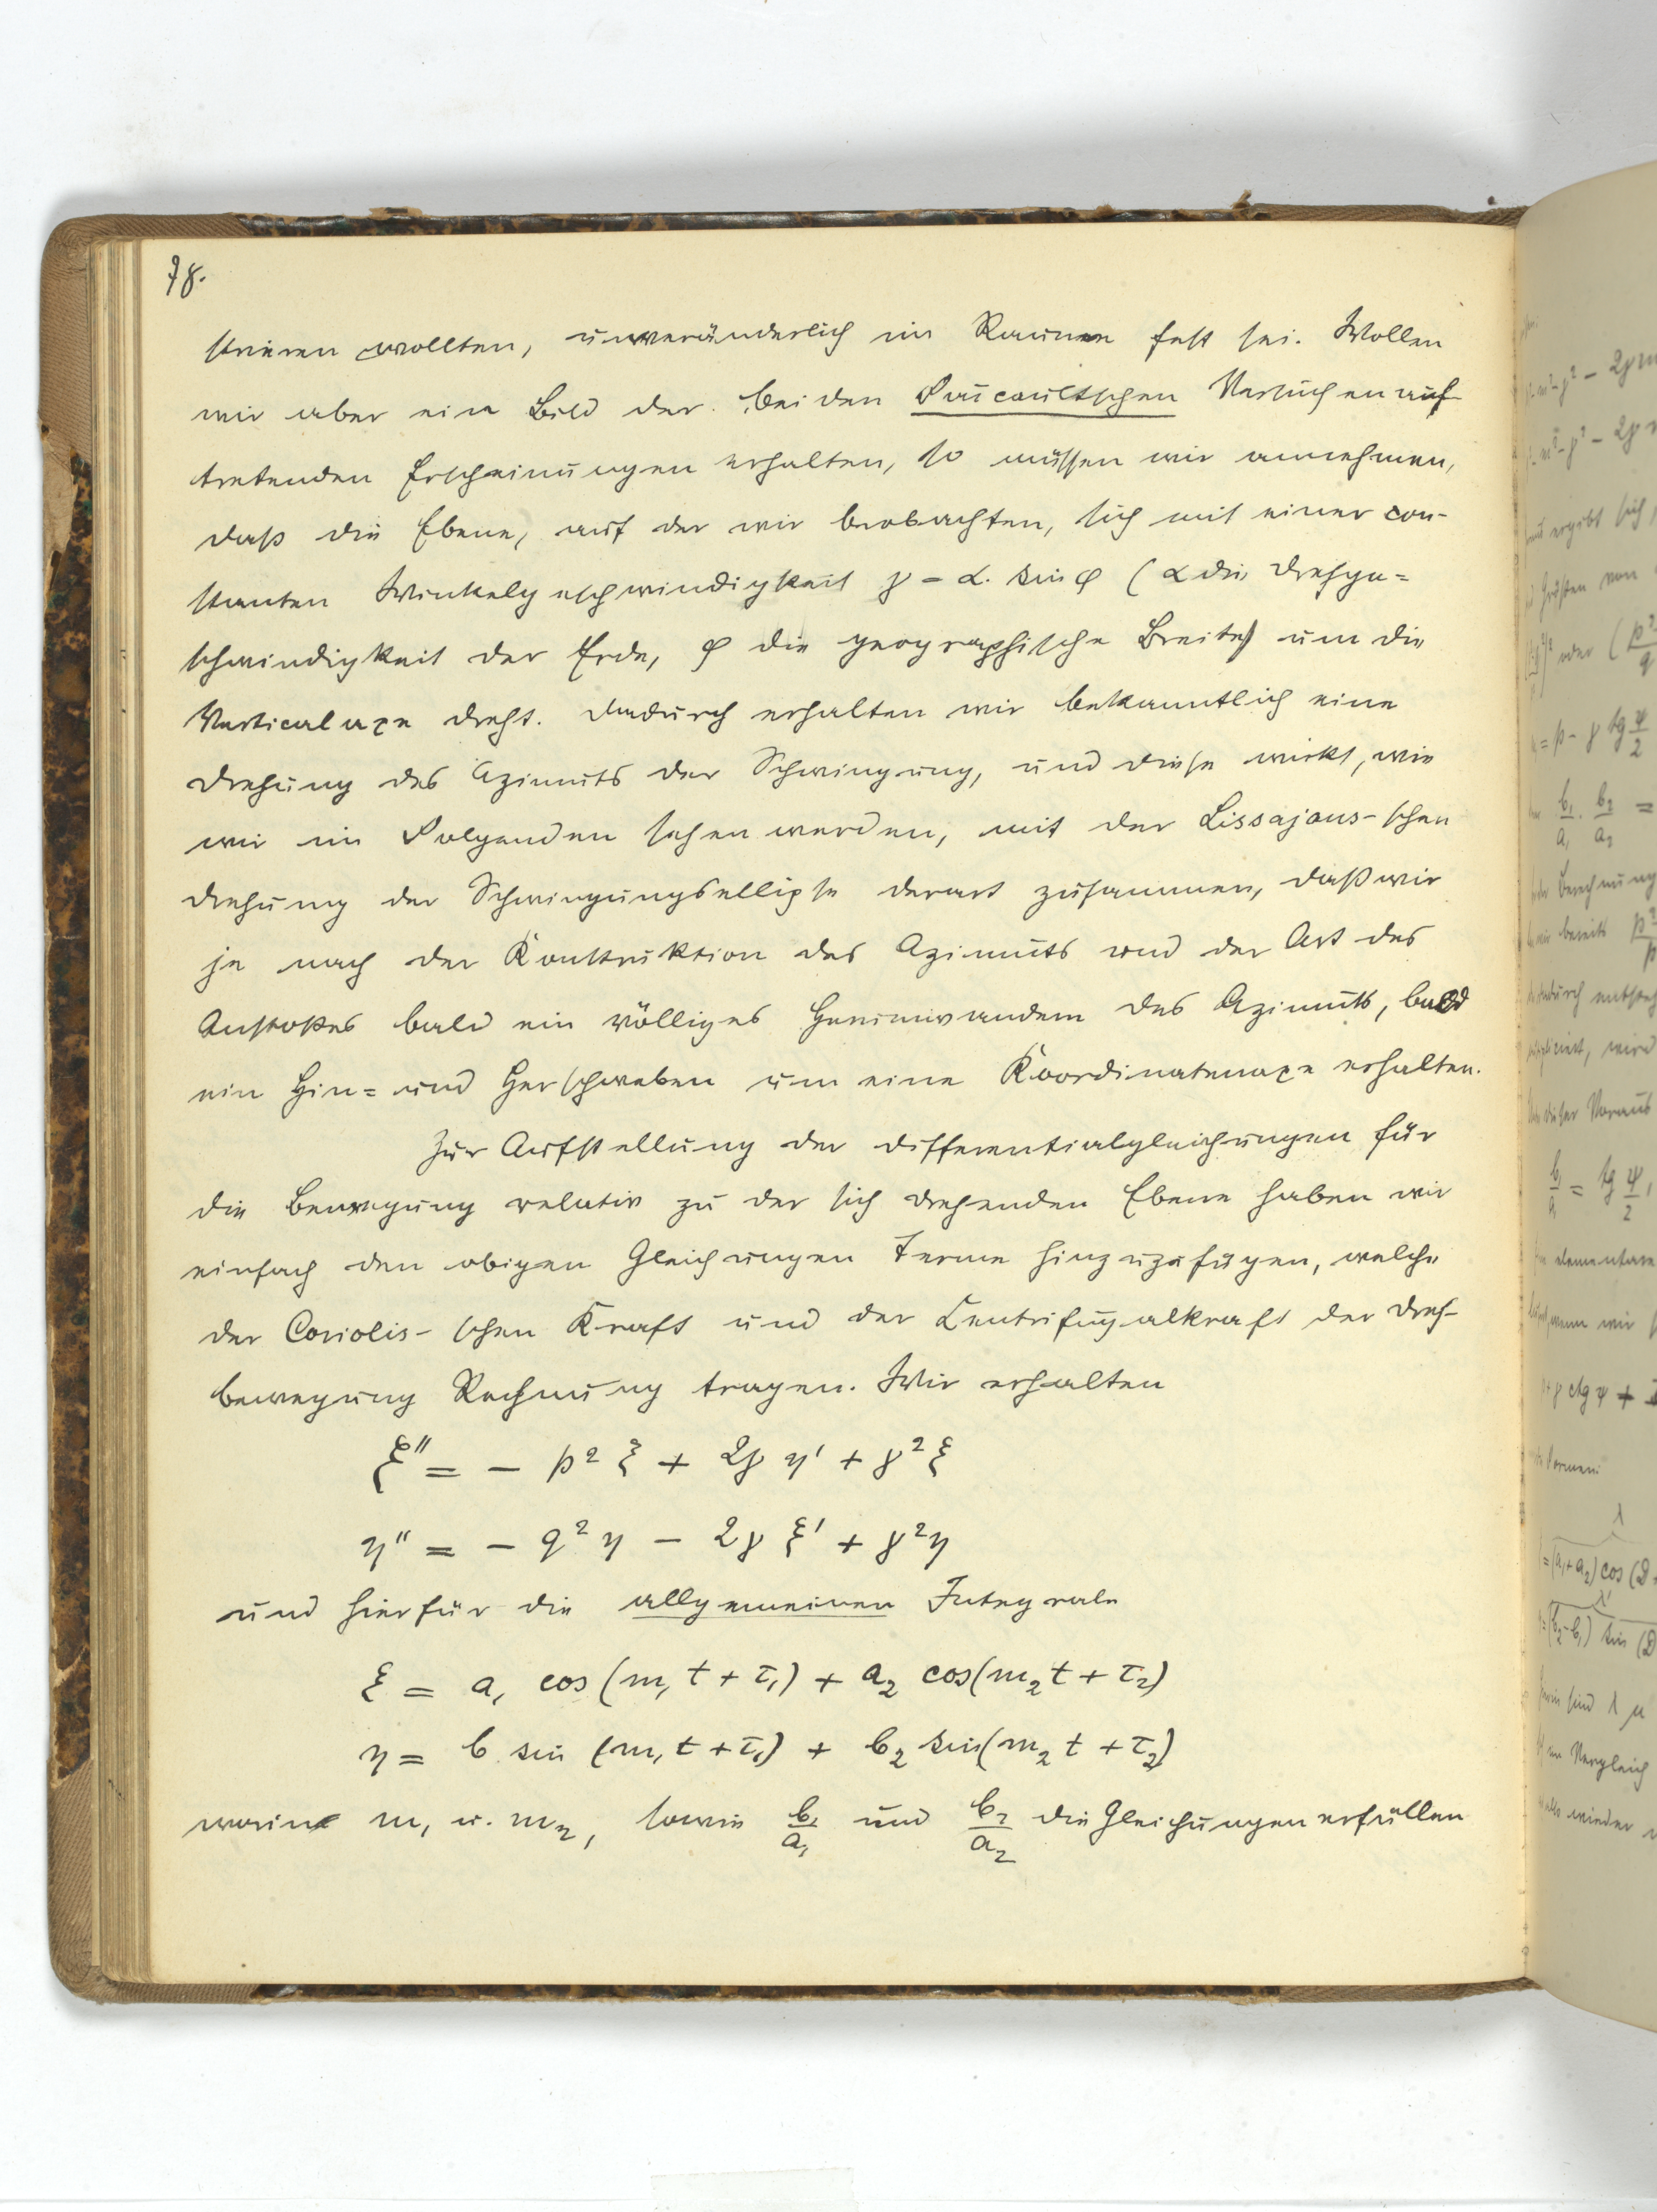 78.
strieren wollten, unveränderlich im Raume fest sei. Wollen
wir aber ein Bild der bei den Foucaultschen Versuchen auf-
tretenden Erscheinungen erhalten, so müssen wir annehmen,
daß die Ebene, auf der wir beobachten, sich mit einer con-
stanten Winkelgeschwindigkeit γ = α. sin φ (α die Drehge=
schwindigkeit der Erde, φ die geographische Breite) um die
Verticalaxe dreht. Dadurch erhalten wir bekanntlich eine
Drehung des Azimuts der Schwingung, und diese wirkt, wie
wir im Folgenden sehen werden, mit der Lissajous-schen
Drehung der Schwingungsellipse derart zusammen, daß wir
je nach der Konstruktion des Azimuts und der Art des
Anstoßes bald ein völliges Herumwandern des Azimuts, bald
ein Hin= und Herschweben um eine Koordinatenaxe erhalten.
Zur Aufstellung der Differentialgleichungen für
die Bewegung relativ zu der sich drehenden Ebene haben wir
einfach den obigen Gleichungen Terme hinzuzufügen, welche
der Coriolis-schen Kraft und der Centrifugalkraft der Dreh-
bewegung Rechnung tragen. Wir erhalten
ξ'' = - p² ξ + 2γ η' + γ² ξ
η'' = - q² η - 2γ ξ' + γ² η
und hierfür die allgemeinen Integrale
ξ = a₁ cos (m₁ t + τ₁) + a₂ cos (m₂ t + τ₂)
η = b sin (m₁ t + τ₁) + b₂ sin (m₂ t + τ₂)
worin m₁ u. m₂, sowie b₁/a₁ und b₂/a₂ die Gleichungen erfüllen